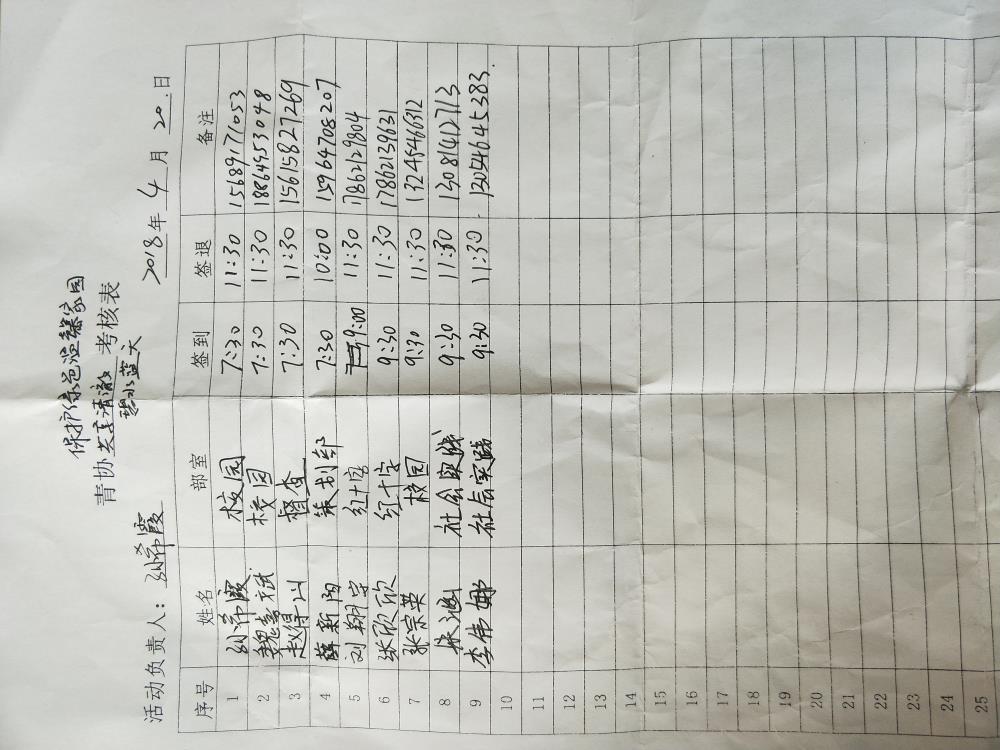 保护绿色温馨家园
青协共享清澈考核表
碧水蓝天
活动负责人：孙希霞 2018年4月20日
序号 姓名 部室 签到 签退 备注
1 孙希霞 校园 7:30 11:30 15689171053
2 魏嘉斌 校园 7:30 11:30 18864953048
3 赵得山 督查 7:30 11:30 15615827269
4 薛新阳 策划部 7:30 10:00 15964708207
5 刘翔宇 红十字 9:00 11:30 17862129804
6 张欣欣 红十字 9:30 11:30 17862139631
7 张宗英 校园 9:30 11:30 13245466312
8 社会实践 9:30 11:30 13081412713
9 李伟娜 社会实践 9:30 11:30 13054645383
10
11
12
13
14
15
16
17
18
19
20
21
22
23
24
25